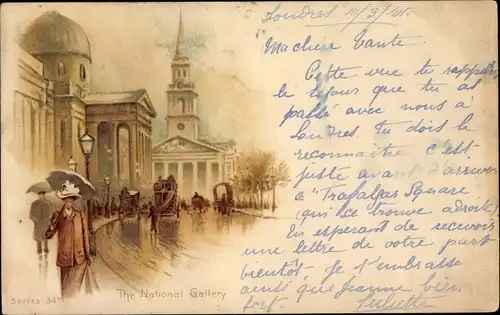 Londres 10/3/01.
Ma chère Tante.
Cette vue te rappelle
le séjour que tu as
passé avec nous à
Londres. Tu dois le
reconnaître c'est
juste avant d'arriver
à "Trafalgar Square
(qui se trouve à droite)
En esperant de recevoir
une lettre de votre part
bientôt. Je t'embrasse
ainsi que Jeanne bien
fort. Juliette
The National Gallery
Series 34